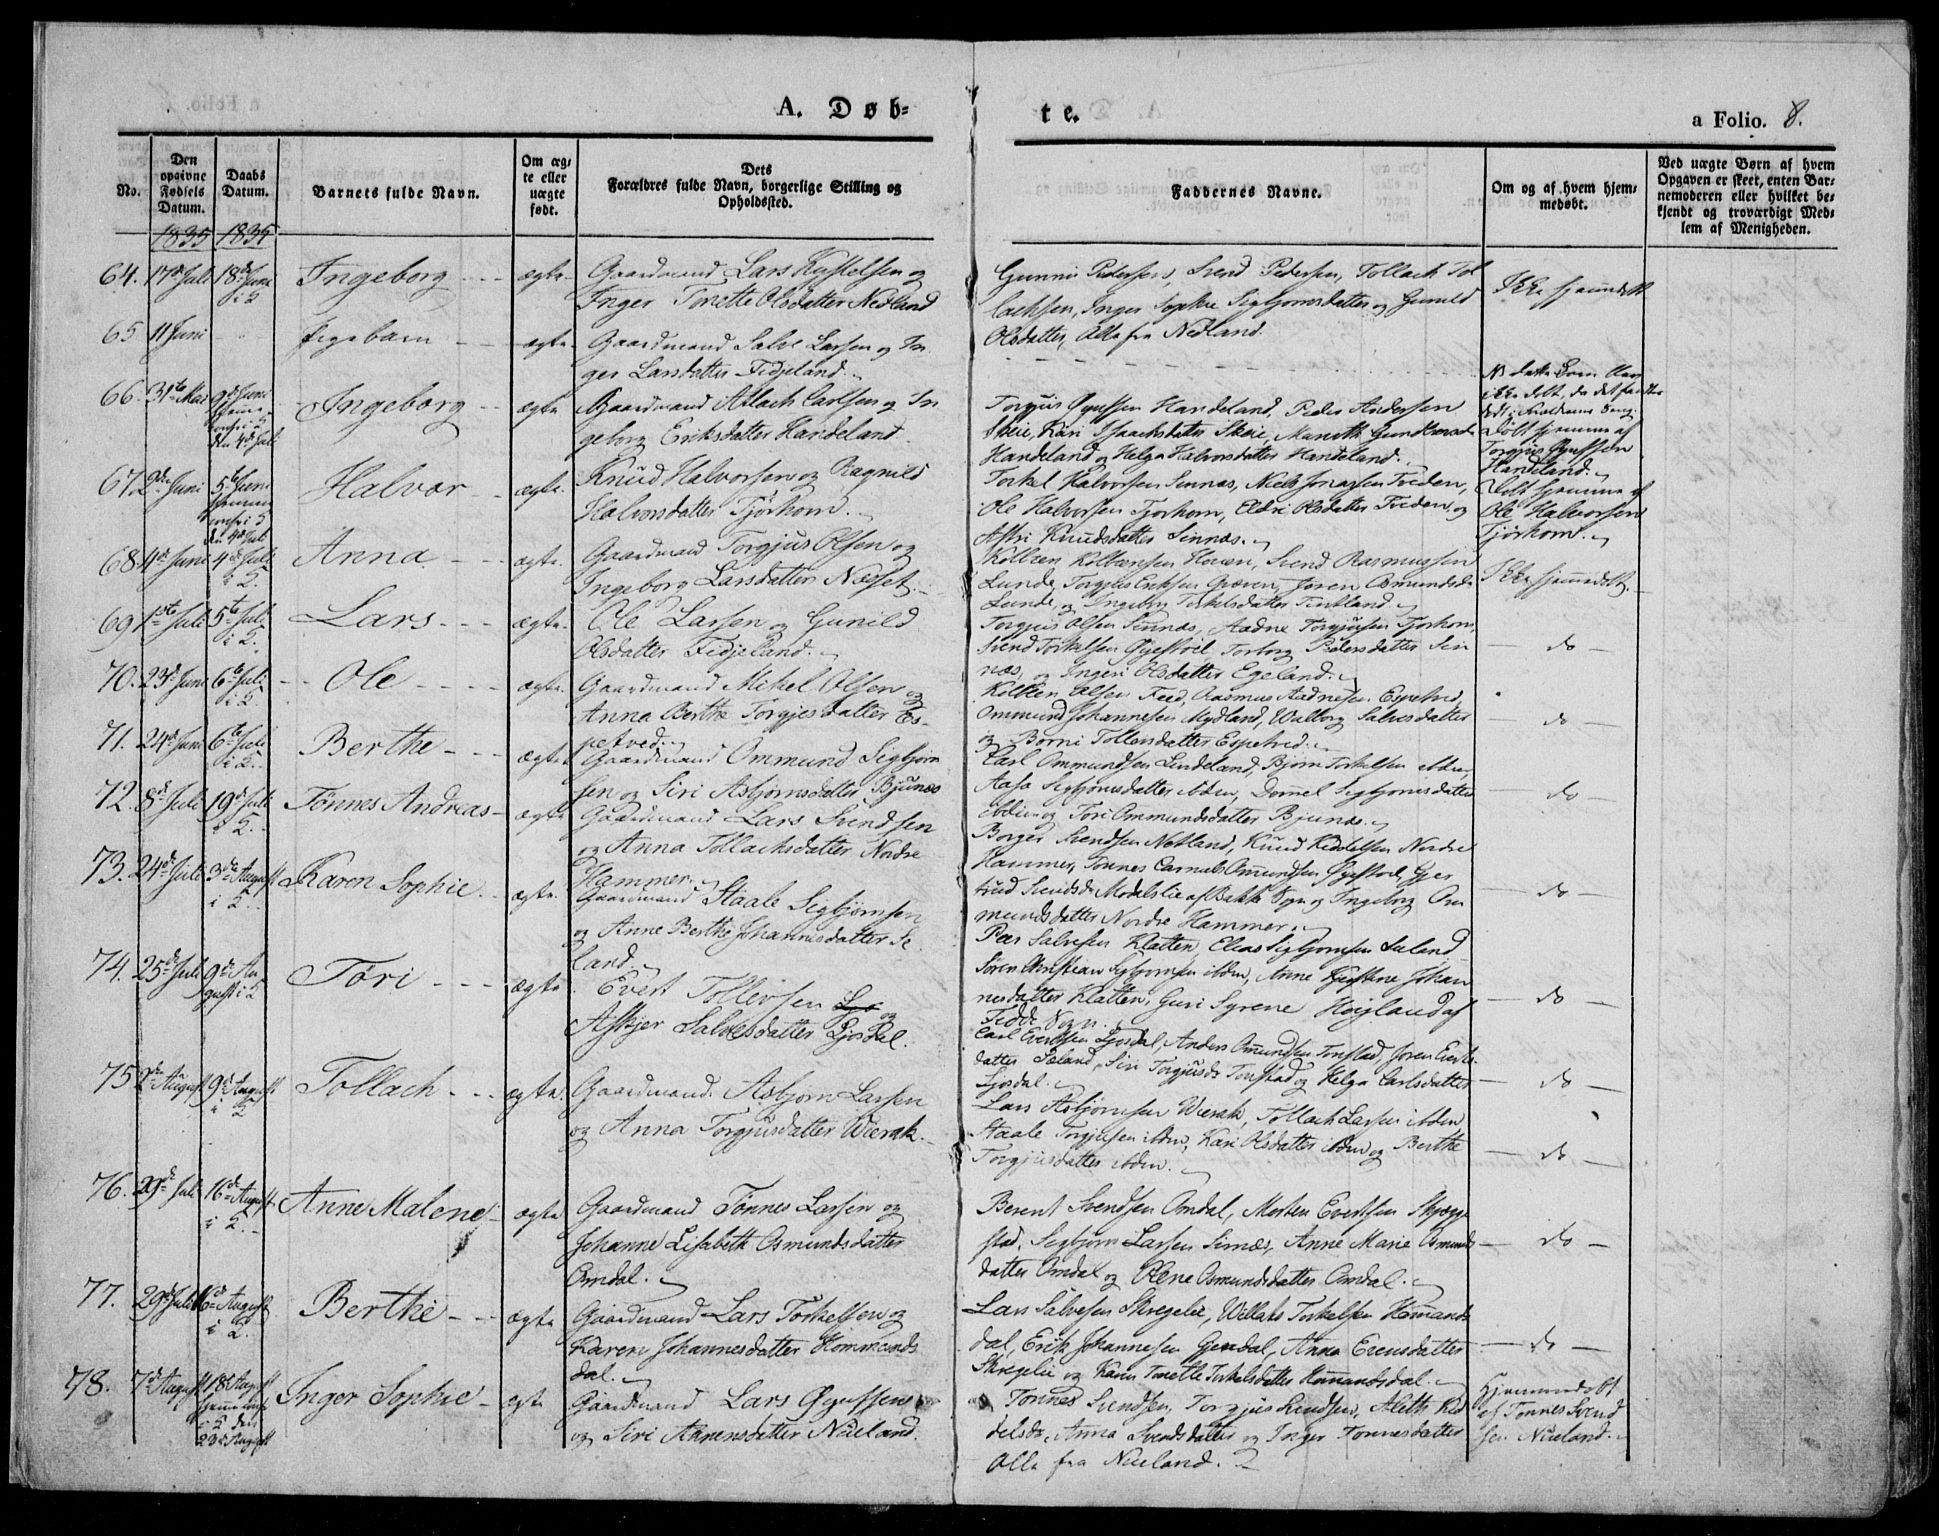 A. Døb=
te.
a Folio. 8.
No.
Den opgivne Fødsels Datum.
Daabs Datum.
Barnets fulde Navn.
Om æg= te eller uægte født.
Dets
Forældres fulde Navn, borgerlige Stilling og
Opholdssted.
Faddernes Navne.
Om og af hvem hjem=
medøbt.
Ved uægte Børn af hvem
Opgaven er skeet, enten Bar=
nemoderen eller hvilket be=
kjendt og troværdigt Med=
lem af Menigheden.
1835 1835
64. 17d Juli 18de Juni i 2 Ingeborg ægte Gaardmand Lars Kystelsen og
Inger Tonette Olsdatter Nedland
Gunni Pedersen, Svend Pedersen, Tollach Tol
lachsen, Inger Sophie Sigbjørnsdatter og Gunild
Olsdatter, Alle fra Nedland.
Ikke hjemmedøbt
65 11 Juni ægte Gaardmand Salve Larsen og In
ger Larsdatter Fidjeland.
66. 31te Mai Ingeborg ægte Gaardmand Atlach Carlsen og In
geborg Eriksdatter Handeland.
Torgjus Handeland, Peder Andersen
Skeie, Kari Isaachsdatter Skeie,
Handeland og Helga Halvorsdatter Handeland.
Døbt hjemme af
Torgjus
Handeland.
67. 2den Juni 5te Juni Halvor ægte. Knud Halvorsen og Ragnild
Halvorsdatter Tjørhom.
Torkel Halvorsen Sinnæs, Niels Jonassen Fveden,
Ole Halvorsen Tjorhom, Eldri Olsdatter Fveden, og
Astri Knudsdatter Sinnæs.
Døbt hjemme af
Ole Halvorsen
Tjørhom.
68. 4de Juni 4de Juli i 2. Anna ægte. Gaardmand Torgjus Olsen og
Ingeborg Larsdatter Næset.
Svend Rasmussen
Lunde, Torgjus Eriksen
Lunde, og Ingeborg Torkelsdatter
Ikke hjemmedøbt.
69 1ste Juli 5te Juli i 2. Lars ægte. Ole Larsen og Gunild
Olsdatter Fidjeland.
Torgjus Olsen Sinnæs, Aadne Torgjusen Tjorhom,
Svend Torkelsen Øyestvil, Torborg Pedersdatter Sin
næs, og Ingeri Olsdatter Egeland.
do
70. 23d Juni 6te Juli i 2. Ole ægte. Gaardmand Mikel Olsen og
Anna Berthe Torgjesdatter Es-
petved.
Olsen Feed, Rasmus Aadnesen Espetved,
Ommund Johannesen Mydland, Walborg Salvesdatter
og Børni Tollevsdatter Espetved.
do
71. 24d Juni 6te Juli i 2. Berthe ægte Gaardmand Ommund Sigbjørn
sen og Siri Asbjørnsdatter Bjunes
Carl Ommundsen Lindeland, Bjørn Torkelsen ibden,
Aasa Sigbjørnsdatter ibden, Dornel Sigbjørnsdatter
ibden og Tori Ommundsdatter Bjunes.
do
72. 8d Juli 19d Juli i 2. Tønnes Andreas ægte Gaardmand Lars Svendsen
og Anna Tollachsdatter Nordre
Hammer.
Borger Svendsen Netland, Knud Kiddelsen Nordre
Hammer, Tønnes Omundsen Øyestvil, Gjer
trud Svendsdr Modelslie af Bakke Sogn og Ingeborg Om
mundsdatter Nordre Hammer.
do
73. 24de Juli 3de August i 2. Karen Sophie ægte. Gaardmand Staale Sigbjørnsen
og Anne Berthe Johannesdatter Se
land.
Peer Salvesen Klatten, Elias Sigbjornsen Sæland
Søren Christian Sigbjornsen ibden, Anne Johan
nesdatter Klatten, Guri Syrene Høyland af
Fedde Sogn.
do
74. 25de Juli 9de August i 2 Tøri ægte Evert Tollevsen og
Askjer Salvesdatter Ljosdal.
Carl Evertsen Ljosdal, Anders Omundsen Tonstad,
datter Sæland, Siri Torgjusdr Tonstad og Helga Carlsdatter
Ljosdal.
do
75 2den August 9d August i 2 Tollach ægte. Gaardmand Asbjørn Larsen
og Anna Torgjusdatter Wierak.
Lars Asbjørnsen Wierak, Tollach Larsen ibden,
Staale Torgjusen ibden, Kari Olsdatter ibden og Berthe
Torgjusdatter ibden.
do
76. 29d Juli 16de August i 2. Anne Malene ægte Gaardmand Tønnes Larsen og
Johanne Lisabeth Osmundsdatter
Omdal.
Berent Svendsen Omdal, Morten Evertsen Skjegge
stad, Segbjørn Larsen Sirnes, Anne Marie Osmunds
datter Omdal og Olene Osmundsdatter Omdal.
do
77. 29d Juli 16de August i 2. Berthe ægte Gaardmand Lars Torkelsen og
Karen Johannesdatter Hommands
dal.
Lars Salvesen Skregelie, Willads Torkelsen Homands
dal, Erik Johannesen Gyndal, Anna Evensdatter
Skregelie og Karen Tonette Torkelsdatter Homandsdal.
do
78. 7d August 18d August Inger Sophie ægte Gaardmand Lars
og Siri Ahrensdatter Nüeland.
Tønnes Svendsen, Torgjus Svendsen, Aleth Kid
delsdr, Anna Svendsdatter og Inger Tønnesdatter
Alle fra Nüeland.
Hjemmedøbt
af Tønnes Svend
sen Nüeland.